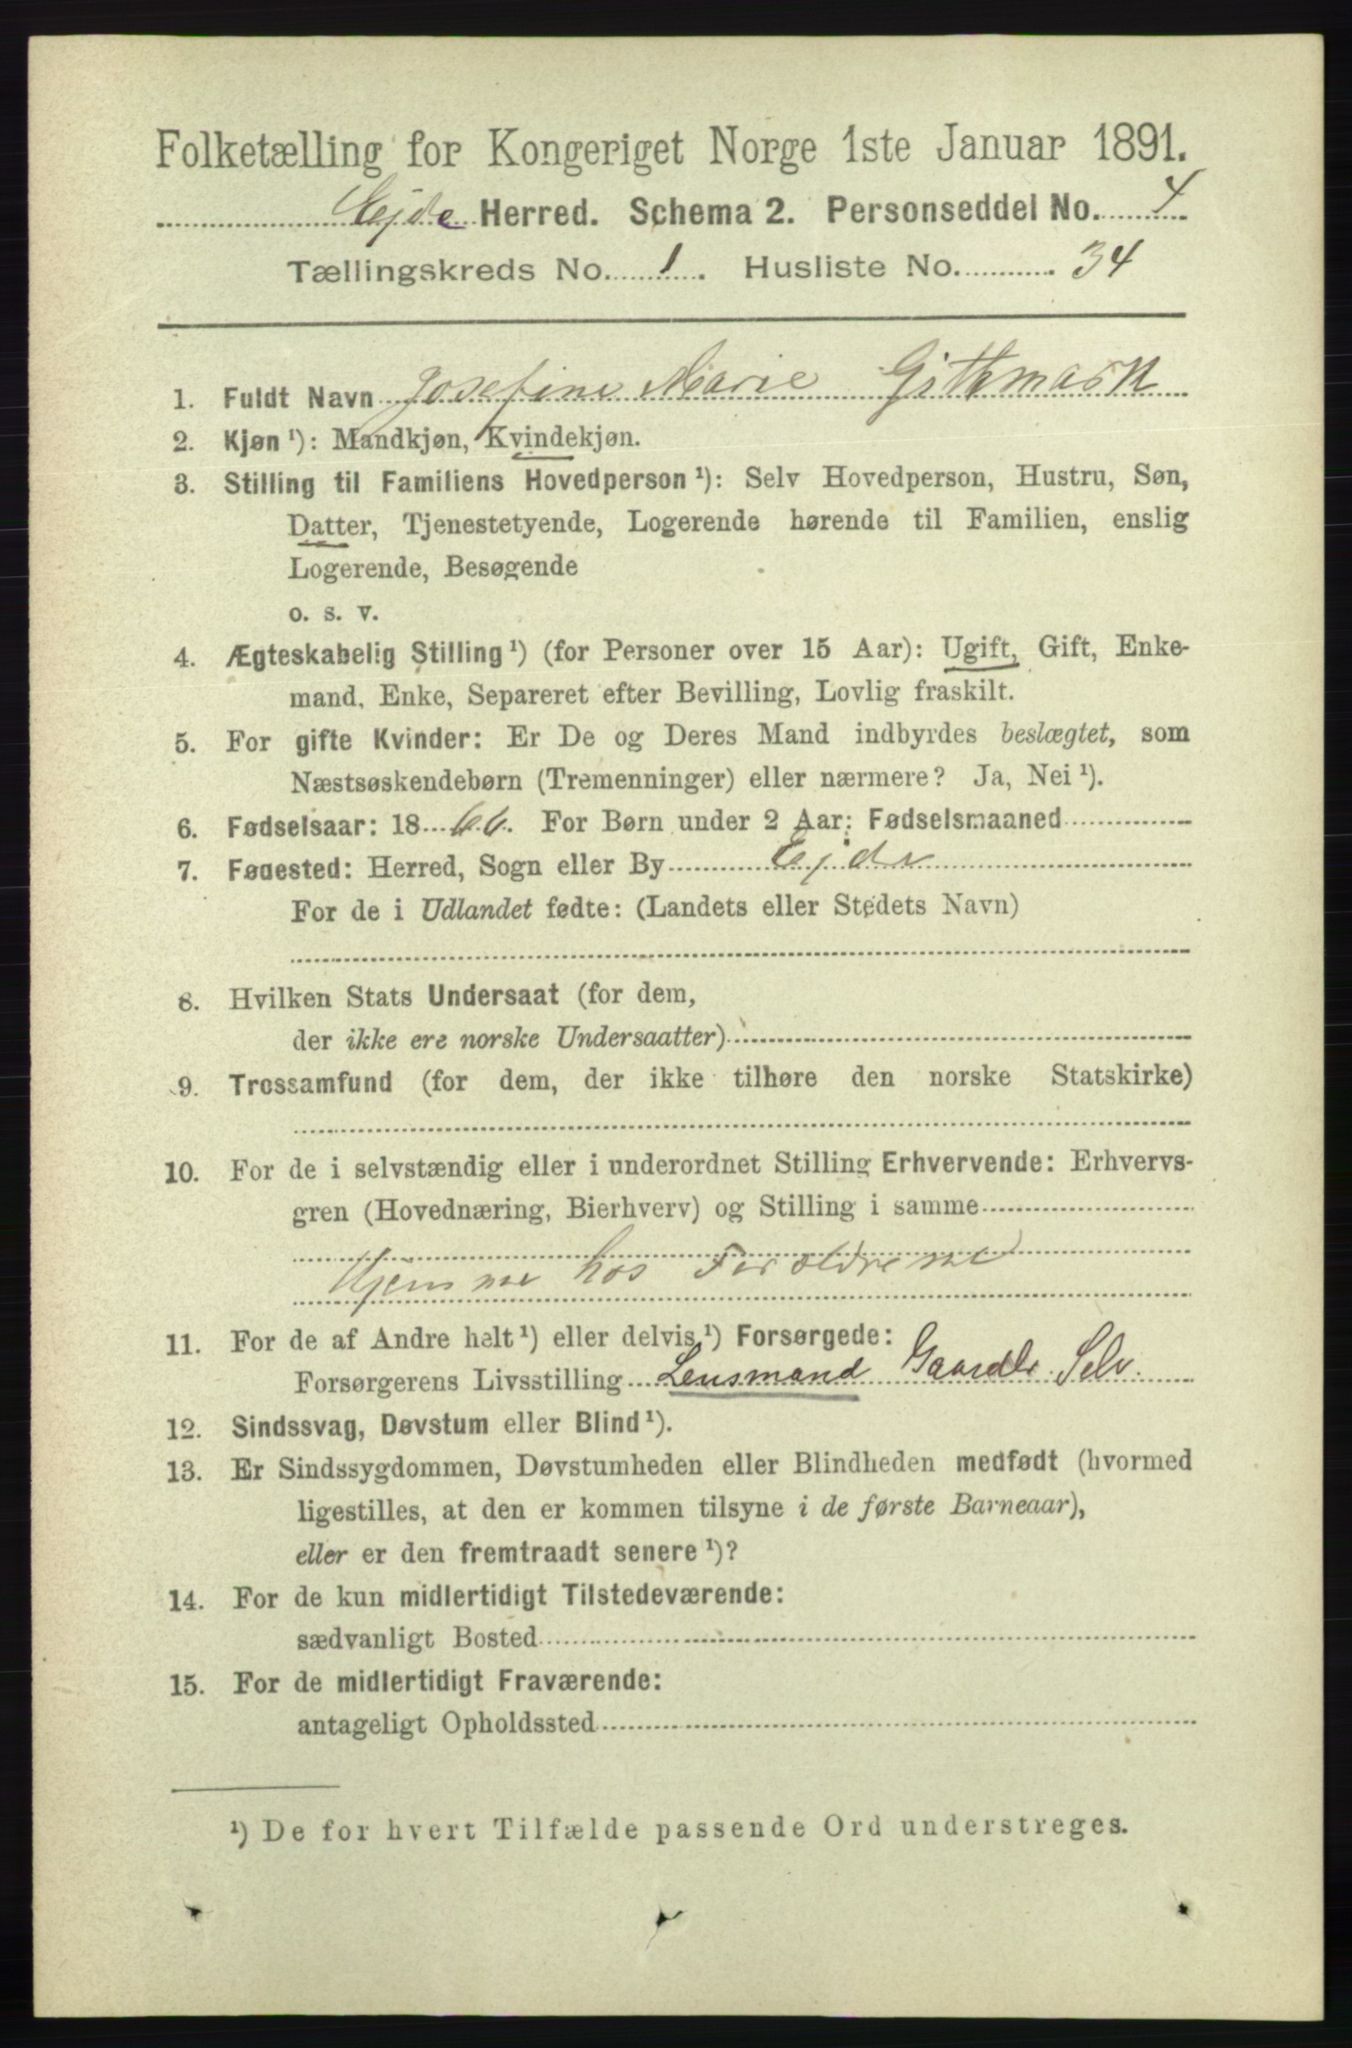 Folketælling for Kongeriget Norge 1ste Januar 1891.
Ejde Herred. Schema 2. Personseddel No. 4
Tællingskreds No. 1. Husliste No. 34
1. Fuldt Navn Josefine Marie Githmark
2. Kjøn¹): Mandkjøn, Kvindekjøn.
3. Stilling til Familiens Hovedperson¹): Selv Hovedperson, Hustru, Søn,
Datter, Tjenestetyende, Logerende hørende til Familien, enslig
Logerende, Besøgende
o. s. v.
4. Ægteskabelig Stilling¹) (for Personer over 15 Aar): Ugift, Gift, Enke-
mand, Enke, Separeret efter Bevilling, Lovlig fraskilt.
5. For gifte Kvinder: Er De og Deres Mand indbyrdes beslægtet, som
Næstsøskendebørn (Tremenninger) eller nærmere? Ja, Nei¹).
6. Fødselsaar: 1866. For Børn under 2 Aar: Fødselsmaaned
7. Fødested: Herred, Sogn eller By Ejde
For de i Udlandet fødte: (Landets eller Stedets Navn)
8. Hvilken Stats Undersaat (for dem,
der ikke ere norske Undersaatter)
9. Trossamfund (for dem, der ikke tilhøre den norske Statskirke)
10. For de i selvstændig eller i underordnet Stilling Erhvervende: Erhvervs-
gren (Hovednæring, Bierhverv) og Stilling i samme
Hjemme hos Forældrene
11. For de af Andre helt¹) eller delvis¹) Forsørgede:
Forsørgerens Livsstilling Lensmand Gaardbr Selv.
12. Sindssvag, Døvstum eller Blind¹).
13. Er Sindssygdommen, Døvstumheden eller Blindheden medfødt (hvormed
ligestilles, at den er kommen tilsyne i de første Barneaar),
eller er den fremtraadt senere¹)?
14. For de kun midlertidigt Tilstedeværende:
sædvanligt Bosted
15. For de midlertidigt Fraværende:
antageligt Opholdssted
¹) De for hvert Tilfælde passende Ord understreges.